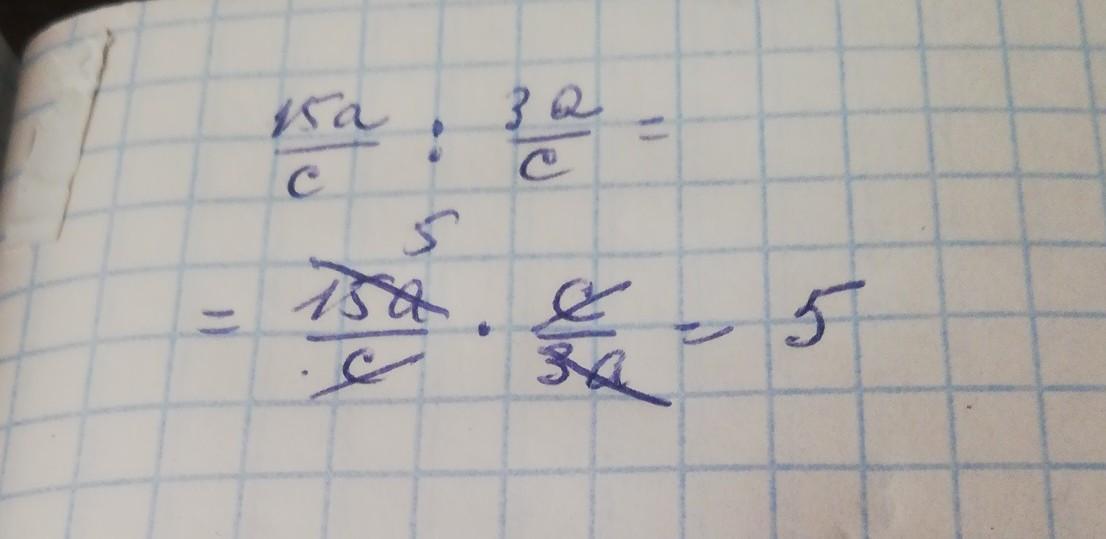 15a/c : 3a/c =
5
= 15a/c · c/3a = 5